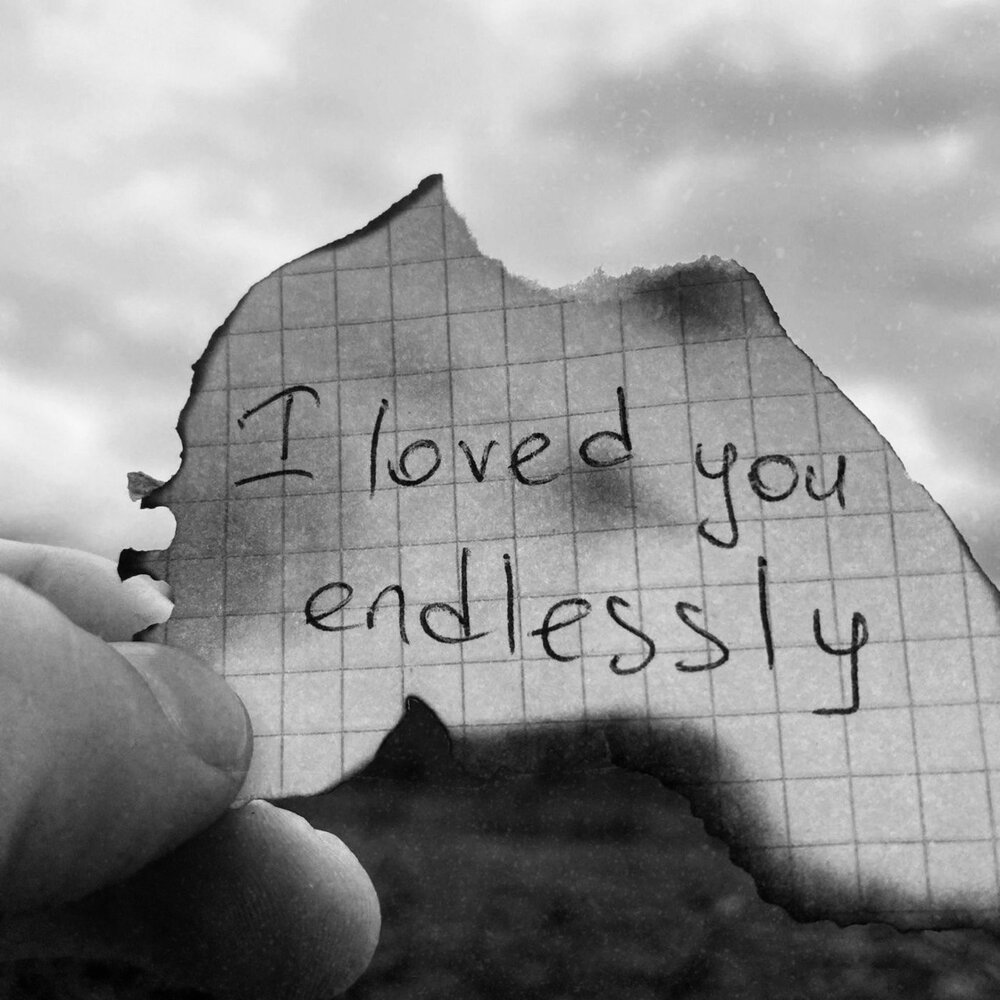 I loved you
endlessly